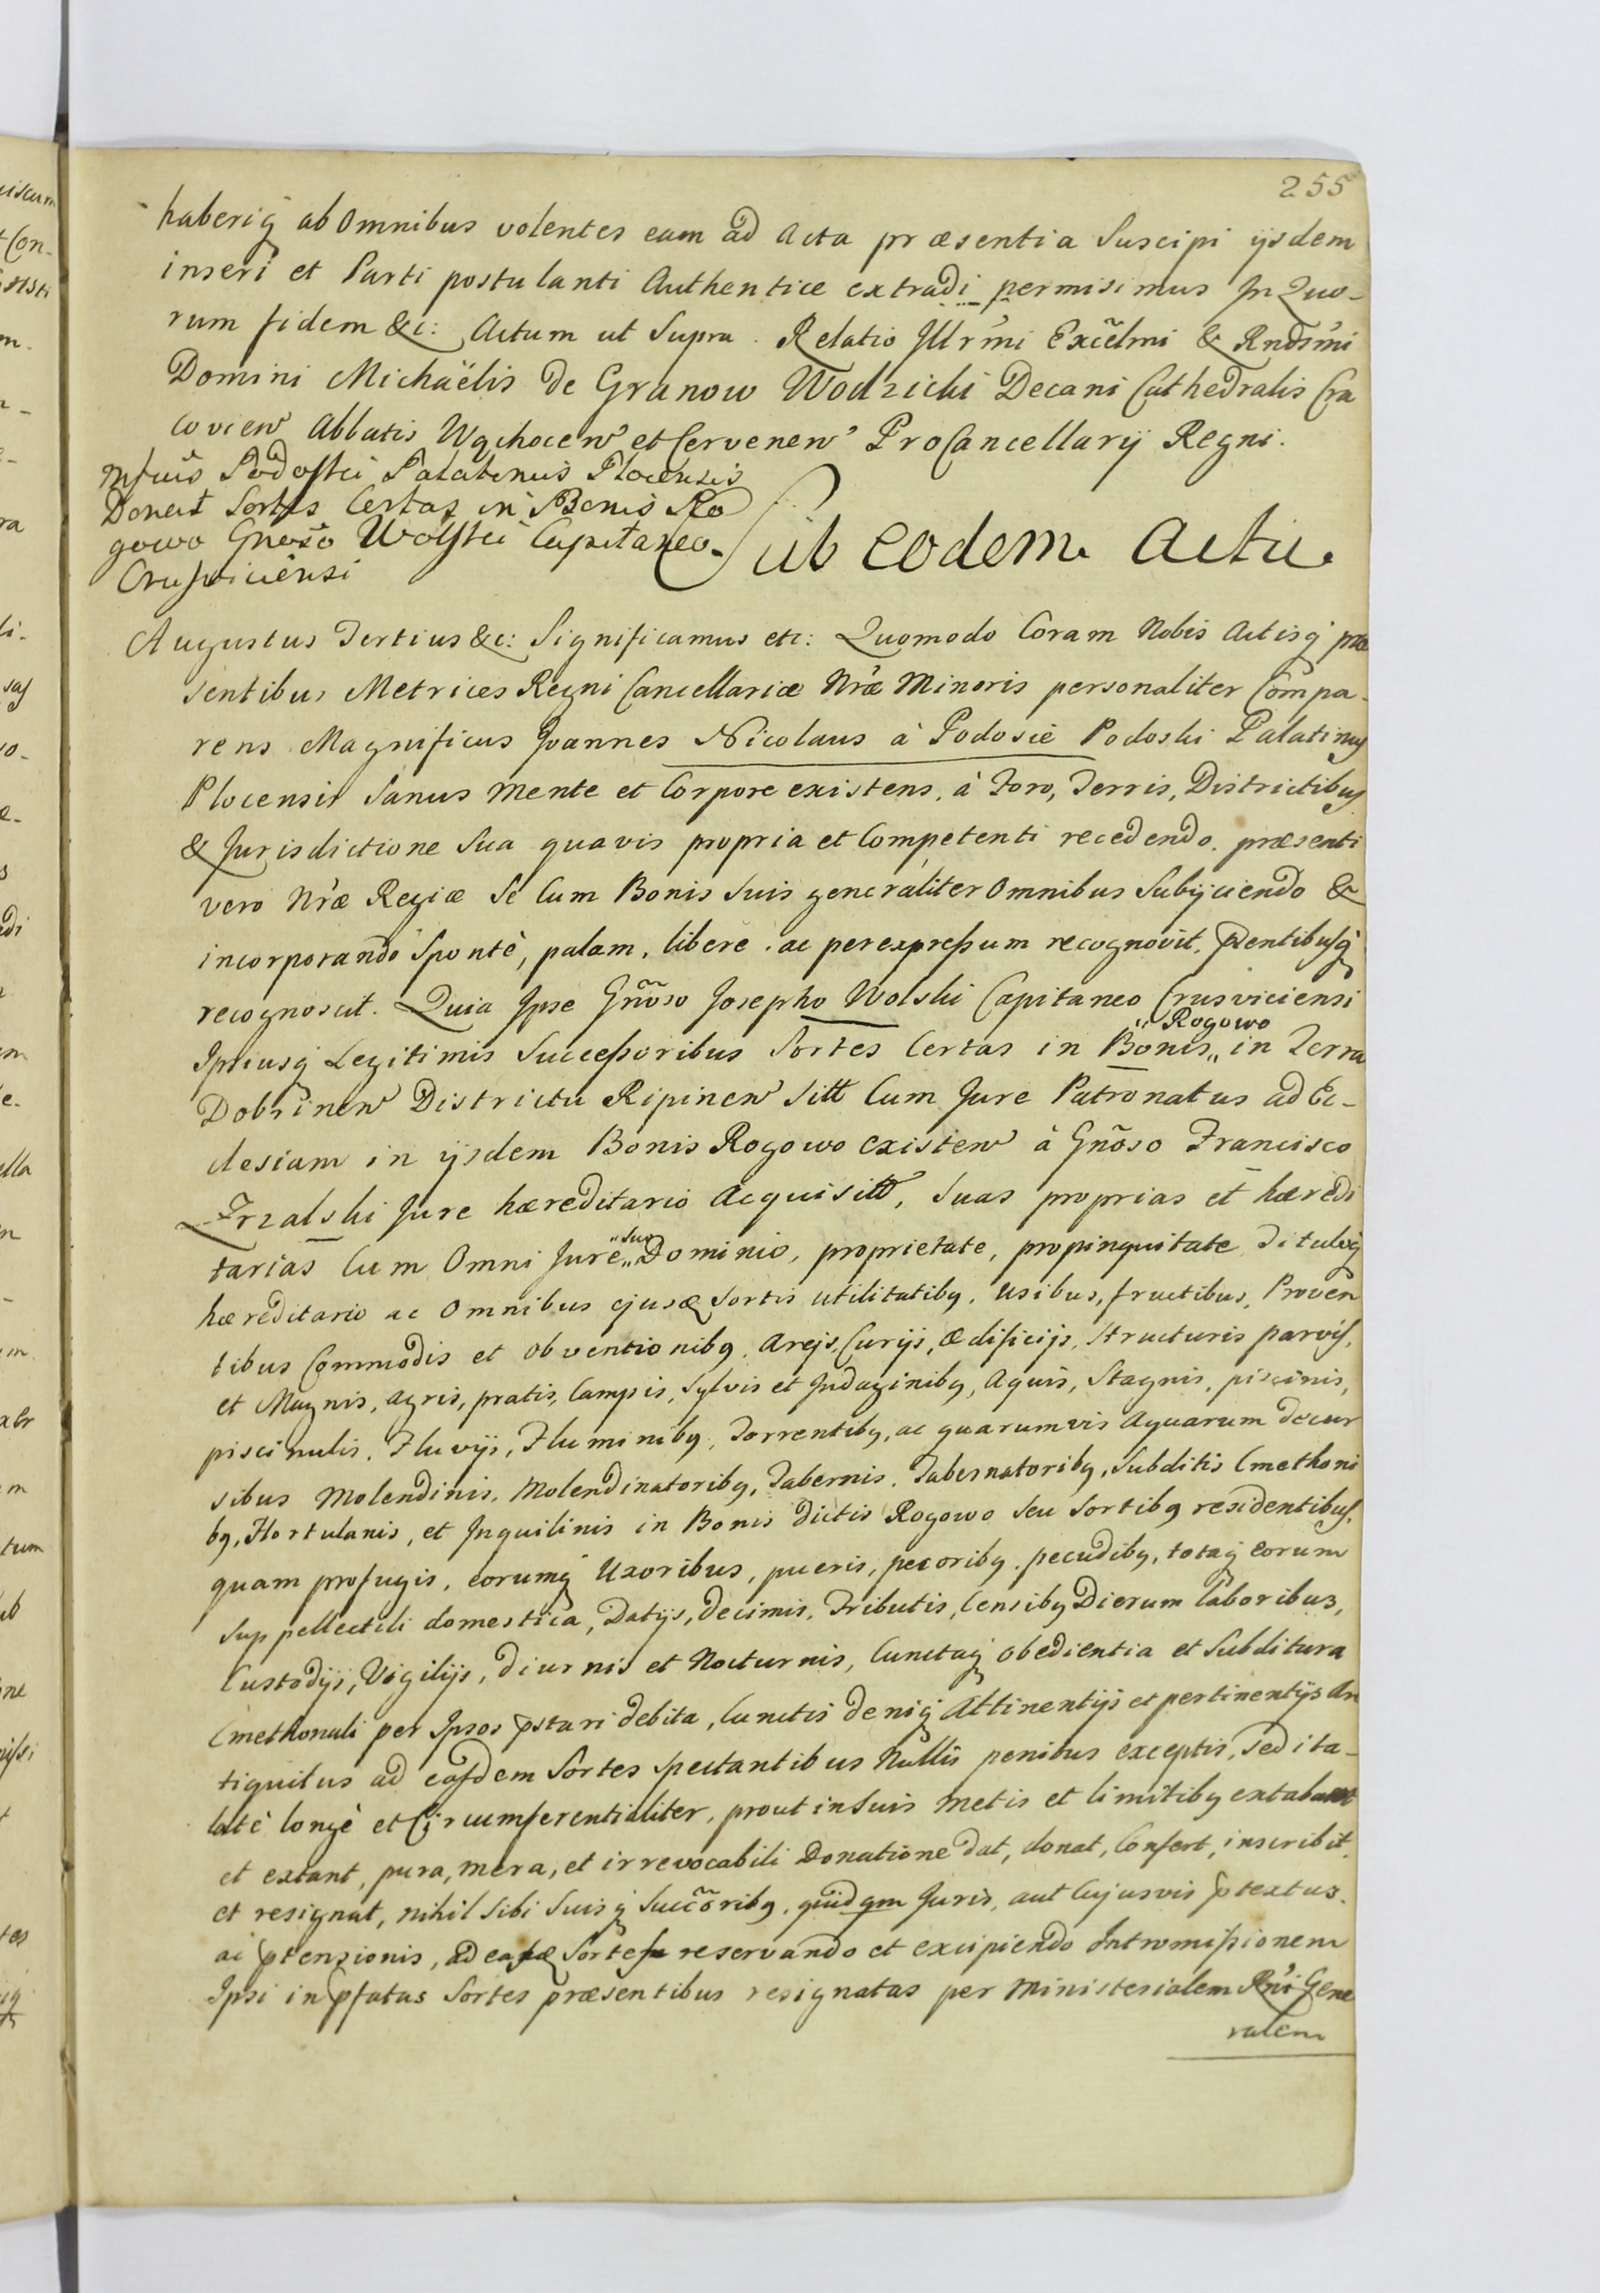 255
haberiq ab Omnibus volentes eam ad Acta præsentia Suscipi ijsdem
inseri et Parti postulanti Authentice extradi permisimus In Quo-
rum fidem &c: Actum ut Supra. Relatio Illrmi Excelmi & Rndsmi
Domini Michaëlis de Granow Wodzicki Decani Cathedralis Cra
covien Abbatis Wąchocen et Cervenen ProCancellarij Regni.
Mfcus Podoski Palatinus Plocensis
Donat Sortes Certas in Bonis Ro
gowo Gnoso Wolski Capitaneo
Crusviciensi
Sub eodem Actu.
Augustus Tertius &c: Significamus etc: Quomodo Coram Nobis Actisq præ
sentibus Metrices Regni Cancellariæ Nræ Minoris personaliter Compa-
rens Magnificus Joannes Nicolaus à Podosie Podoski Palatinus
Plocensis Sanus mente et Corpore existens, à Foro, Terris, Districtibus
& Jurisdictione Sua quavis propria et Competenti recedendo, præsenti
vero Nræ Regiæ Se Cum Bonis Suis generaliter Omnibus Subijciendo &
incorporando Spontè, palam, libere ac per expressum recognovit, pntibusq
recognoscit. Quia Ipse Gnoso Josepho Wolski Capitaneo Crusviciensi
Ipsiusq Legitimis Successoribus Sortes Certas in Bonis „ Rogowo „ in Terra
Dobrinen Districtu Ripinen Sitt Cum Jure Patronatus ad Ec-
clesiam in ijsdem Bonis Rogowo existen à Gnoso Francisco
Trzalski Jure hæreditario Acquisitt, Suas proprias et hæredi
tarias Cum Omni Jure „ suo „ Dominio, proprietate, propinquitate Tituloq
hæreditario ac Omnibus ejusd Sortis utilitatibq, usibus, fructibus, Proven
tibus Commodis et obventionibq, Areis, Curijs, ædificijs, Structuris parvis,
et Magnis, agris, pratis, Campis, Sylvis et Indaginibq, Aquis, Stagnis, piscinis,
piscinulis, Fluvijs, Fluminibq, Torrentibq, ac quarumvis Aquarum decur
sibus Molendinis, Molendinatoribq, Tabernis, Tabernatoribq, Subditis Cmethoni
bq, Hortulanis, et Inquilinis in Bonis dictis Rogowo Seu Sortibq residentibus,
quam profugis, eorumq Uxoribus, pueris, pecoribq, pecudibq, totaq eorum
Suppellectili domestica, Datijs, decimis, Tributis, Censibq Dierum laboribus,
Custodijs, Vigilijs, diurnis et Nocturnis, Cunctaq obedientia et Subditura
Cmethonali per Ipsos pstari debita, Cunctis deniq Attinentijs et pertinentijs An
tiquitus ad easdem Sortes Spectantibus Nullis penitus exceptis, Sed ita
latè longè et Circumferentialiter, prout in Suis metis et limitibq extabant
et extant, pura, mera, et irrevocabili Donatione dat, donat, Confert, inscribit,
et resignat, nihil Sibi Suisq Succoribq, quidqm Juris, aut Cujusvis ptextus
ac ptensionis, ad easd Sortes reservando et excipiendo Intromissionem
Ipsi in pfatas Sortes præsentibus resignatas per Ministerialem Rni Gene
ralem